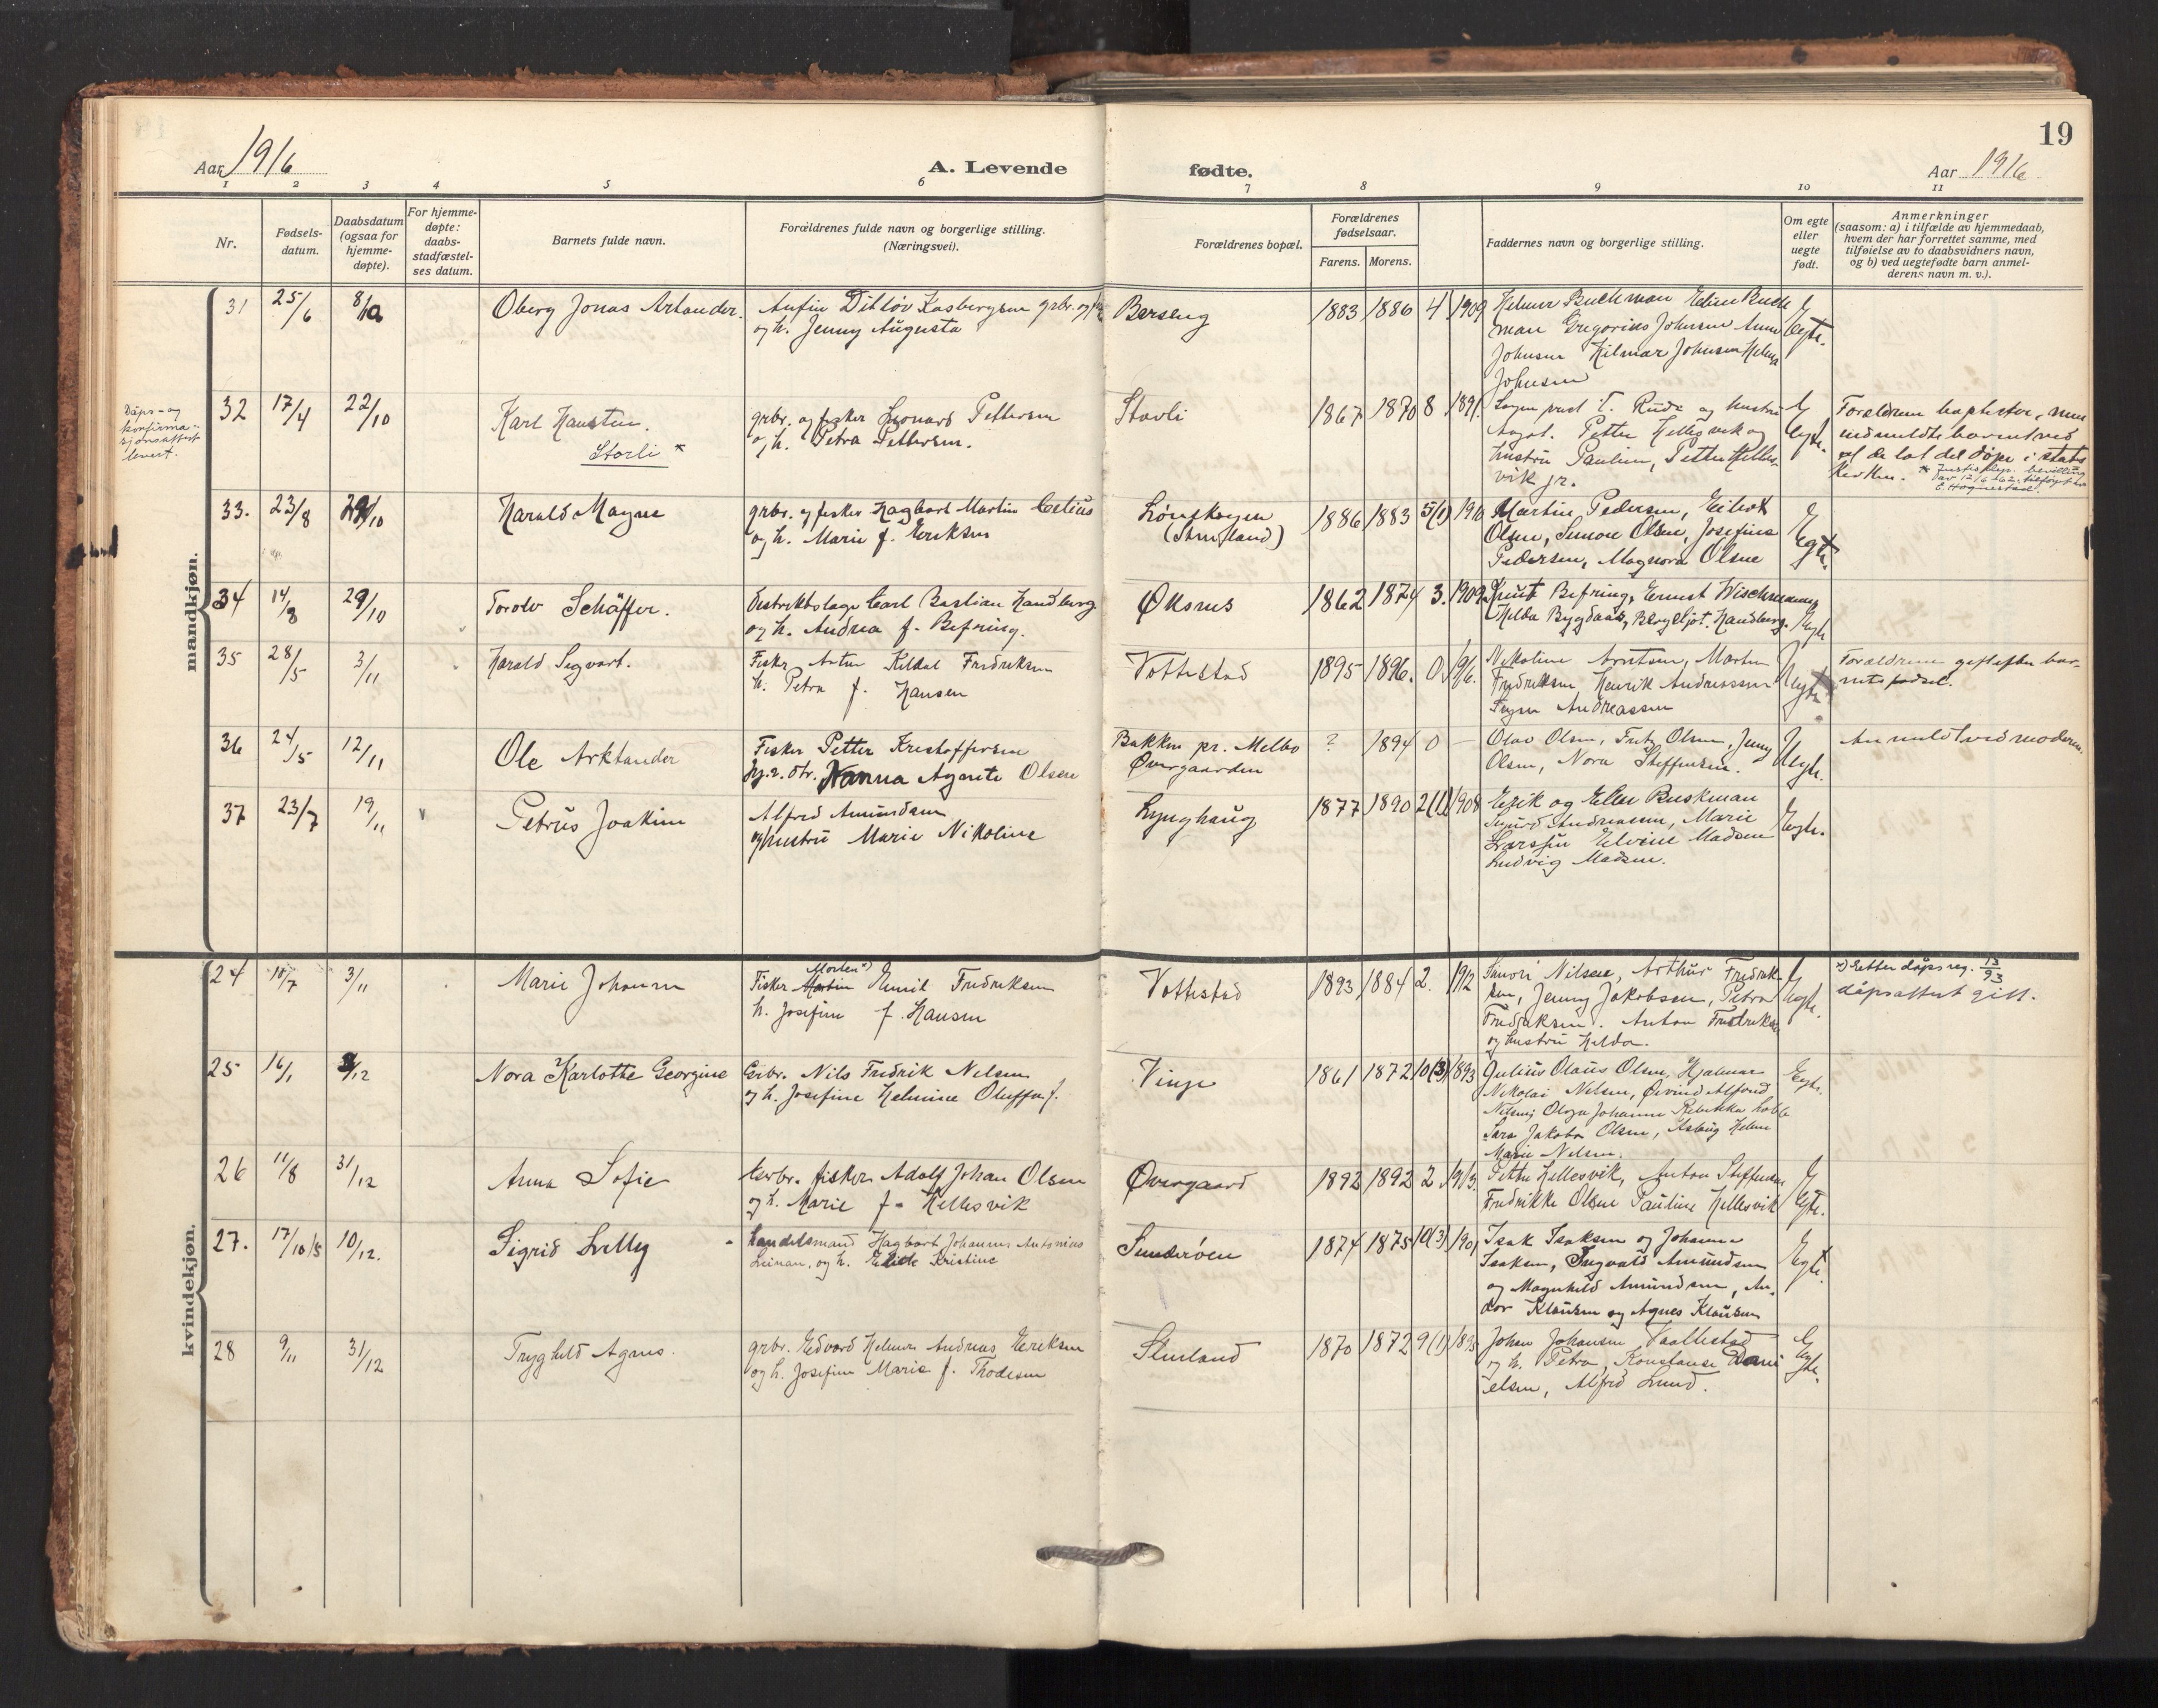 19
Aar 1916
A. Levende fødte.
Aar 1916
1 2 3 4 5 6 7 8 9 10 11
Nr.
Fødsels-
datum.
Daabsdatum
(ogsaa for
hjemme-
døpte).
For hjemme-
døpte:
daabs-
stadfæstel-
ses datum.
Barnets fulde navn.
Forældrenes fulde navn og borgerlige stilling.
(Næringsvei).
Forældrenes bopæl.
Forældrenes
fødselsaar.
Farens. Morens.
Faddernes navn og borgerlige stilling.
Om egte
eller
uegte
født.
Anmerkninger
(saasom: a) i tilfælde av hjemmedaab,
hvem der har forrettet samme, med
tilføielse av to daabsvidners navn,
og b) ved uegtefødte barn anmel-
derens navn m. v.).
mandkjøn.
31 25/6 8/10
Oberg Jonas Arkander.
og h. Jenny Augusta
Berseng
1883 1886 4 1909
Helmer Buchman Eline Buck
man Gregorius Johnsen Anna
Johnsen Hilmar Johnsen Helma
Johnsen
Egte.
Dåps- og
konfirma-
sjonsattest
levert.
32 17/4 22/10
Karl Hansten.
Storli *
grbr. og fisker Leonard Pettersen
og h. Petra Pettersen.
Storli
1867 1870 8 1891
Rude og hustru
Petter Hellesvik og
hustru Pauline, Petter Helles-
vik jr.
Egte.
Forældrene baptister, men
indmeldte barnet ved
at de lot det døpe i stats
kirken. * Justisdep. bevilling
av 12/6 62, tilføyet her
E. Hognestad.
33. 23/8 29/10
Harald Magne
grbr. og fisker Hagbart Martin Celius
og h. Marie f. Eriksen
Lønskogen
1886 1883 5(1) 1910
Martin Pedersen, Eilert
Olsen, Simon Olsen, Josefine
Pedersen, Magnora Olsen
Egte.
34 14/8 29/10
Torolv Schäffer.
Distriktslæge Carl Bastian Handberg
og h. Andrea f. Befring.
Øksnes
1862 1874 3. 1909
Knut Befring, Ernst Wischmann
Hilda Bygdaas, Bergljot Handberg.
Egte
35 28/5 3/11
Harald Sigvart.
Fisker Anton Kildal Fredriksen
h. Petra f. Hansen
Vottestad
1895 1896. 0 1916.
Nikoline Arntsen, Morten
Fredriksen Henrik Andreassen
Andreassen
Uegte
Forældrene gift efter bar-
nets fødsel.
36 24/5 12/11
Ole Arktander
Fisker Petter Kristoffersen
Nanna Agnete Olsen
Bakken pr. Melbo
Øvergaarden
? 1894 0 —
Olav Olsen, Fritz Olsen, Jenny
Olsen, Nora Steffensen.
Uegte.
Anmeldt ved moderen.
37 23/7 19/11
Petrus Joakim
Alfred Amundsen
og hustru Marie Nikoline
Lynghaug
1877 1890 2(1) 1908
Erik og Elen Buskman
Sigurd Andreassen, Marie
Larssen Elvine Madsen
Ludvig Madsen.
Egte.
kvindekjøn.
24 10/7 3/11
Marie Johanne
Morten x)
Fisker Martin Emil Fredriksen
h. Josefine f. Hansen
Vottestad
1893 1884 2. 1912
Simon Nilsen, Arthur Fredrik-
sen, Jenny Jakobsen, Petra
Fredriksen. Anton Fredriksen
og hustru Helda.
Egte.
x) Etter dåpsreg. 13/93
dåpsattest gitt.
25 16/1 3/12
Nora Karlotte Georgine
Grbr. Nils Fredrik Nelsen
og h. Josefine Helmine Oluffa f.
Vinje
1861 1872 10(3) 1893
Julius Olaus Olsen, Hjalmar
Nikolai Nilsen, Øivind Alfred
Nilsen, Olga Johanne Rebekka
Sara Jakoba Olsen, Aslaug Helene
Marie Nelsen.
Egte.
26 11/8 31/12
Anna Sofie
Grbr. fisker Adolf Johan Olsen
og h. Marie f. Hellesvik
Øvergaard
1892 1892 2 1913.
Petter Hellesvik, Anton Steffensen
Fredrikke Olsen Pauline Hellesvik
Egte.
27. 17/10 15 10/12.
Sigrid Lilly
Handelsmand Hagbart Johannes Antonius
Leinan, og h. Elide Kristine
Smedsøen
1874 1875 10(3) 1901
Isak Isaksen og Johanna
Isaksen, Ingvald Amundsen
og Magnhild Amundsen, An-
dor Klausen og Agnes Klausen
Egte.
28 9/11 31/12
Tryghild Agnes.
grbr. Edvard Helmer Andreas Eriksen
og h. Josefine Marie f. Thodesen
Stenland
1870 1872 9(1) 1893
Johan Johansen Vaattestad
og h. Petra, Konstanse Dani
elsen, Alfred Lund.
Egte.